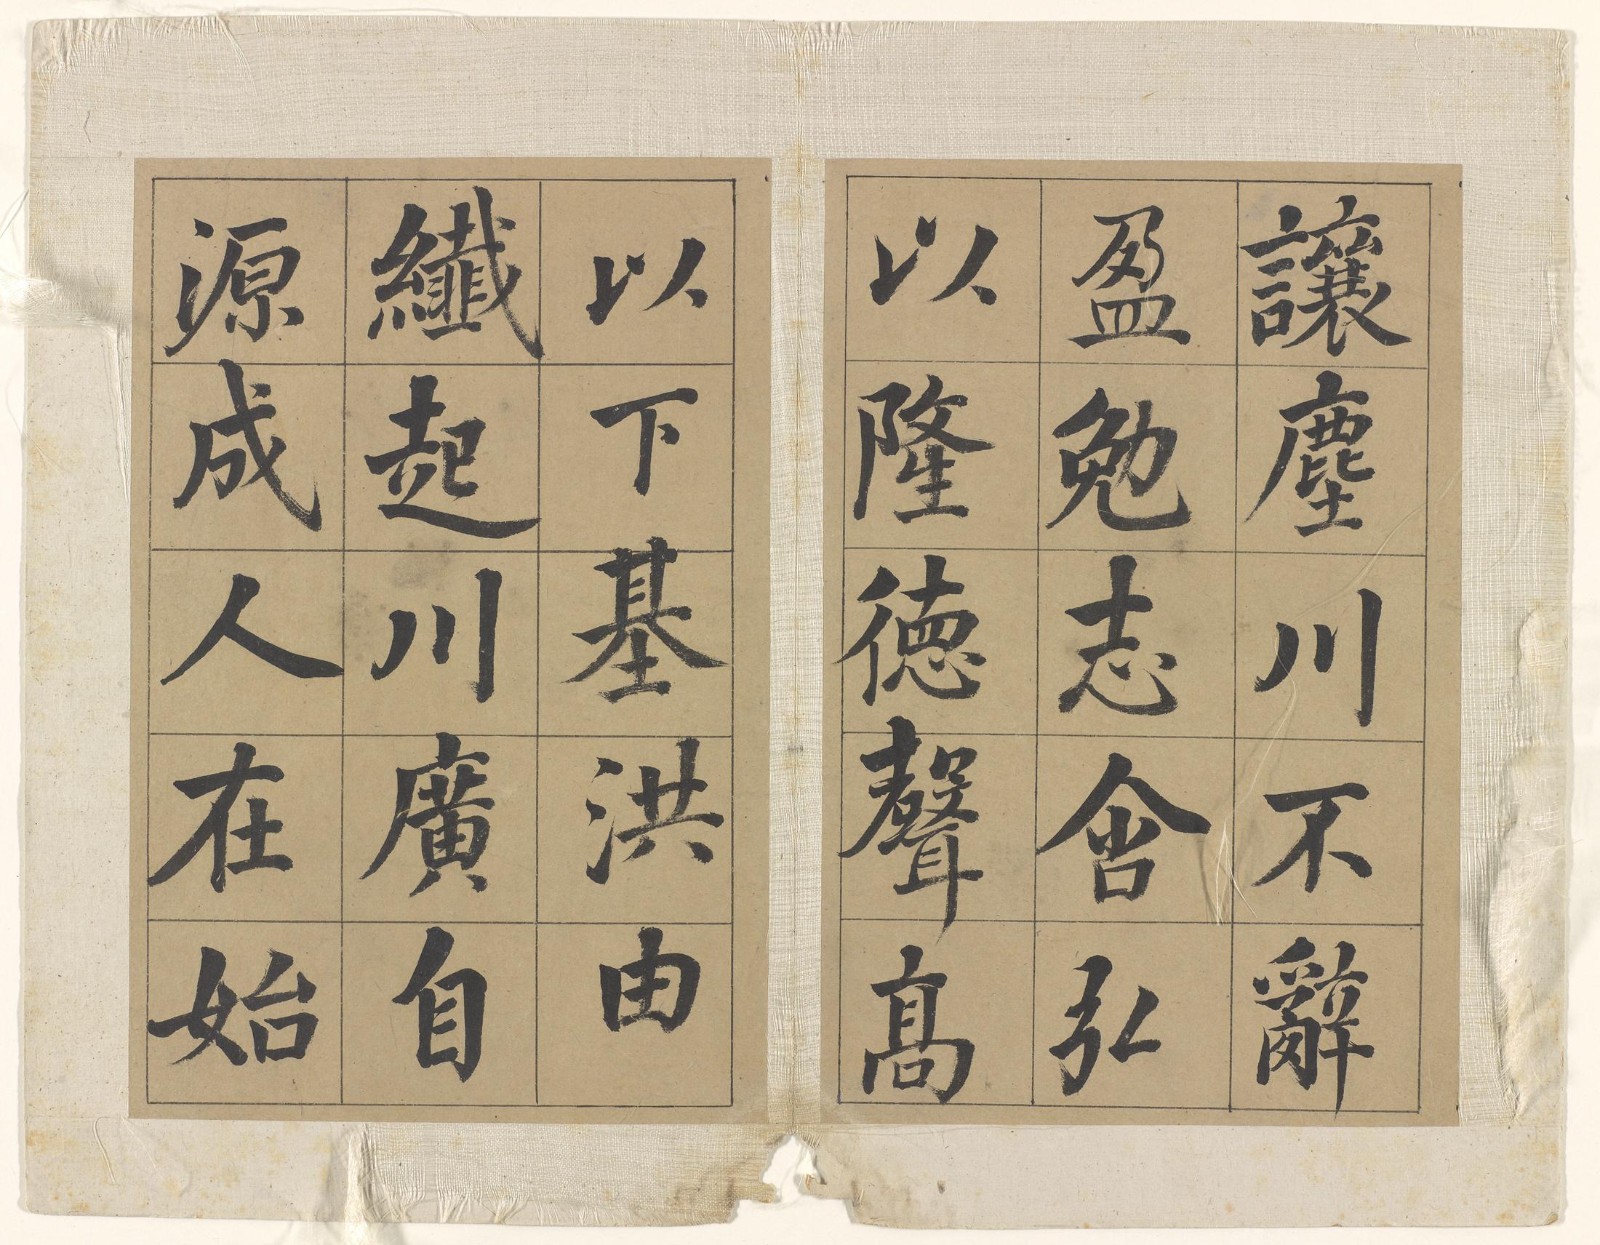 讓塵川不辭
盈勉志含弘
以隆德聲高
以下基洪由
纖起川廣自
源成人在始